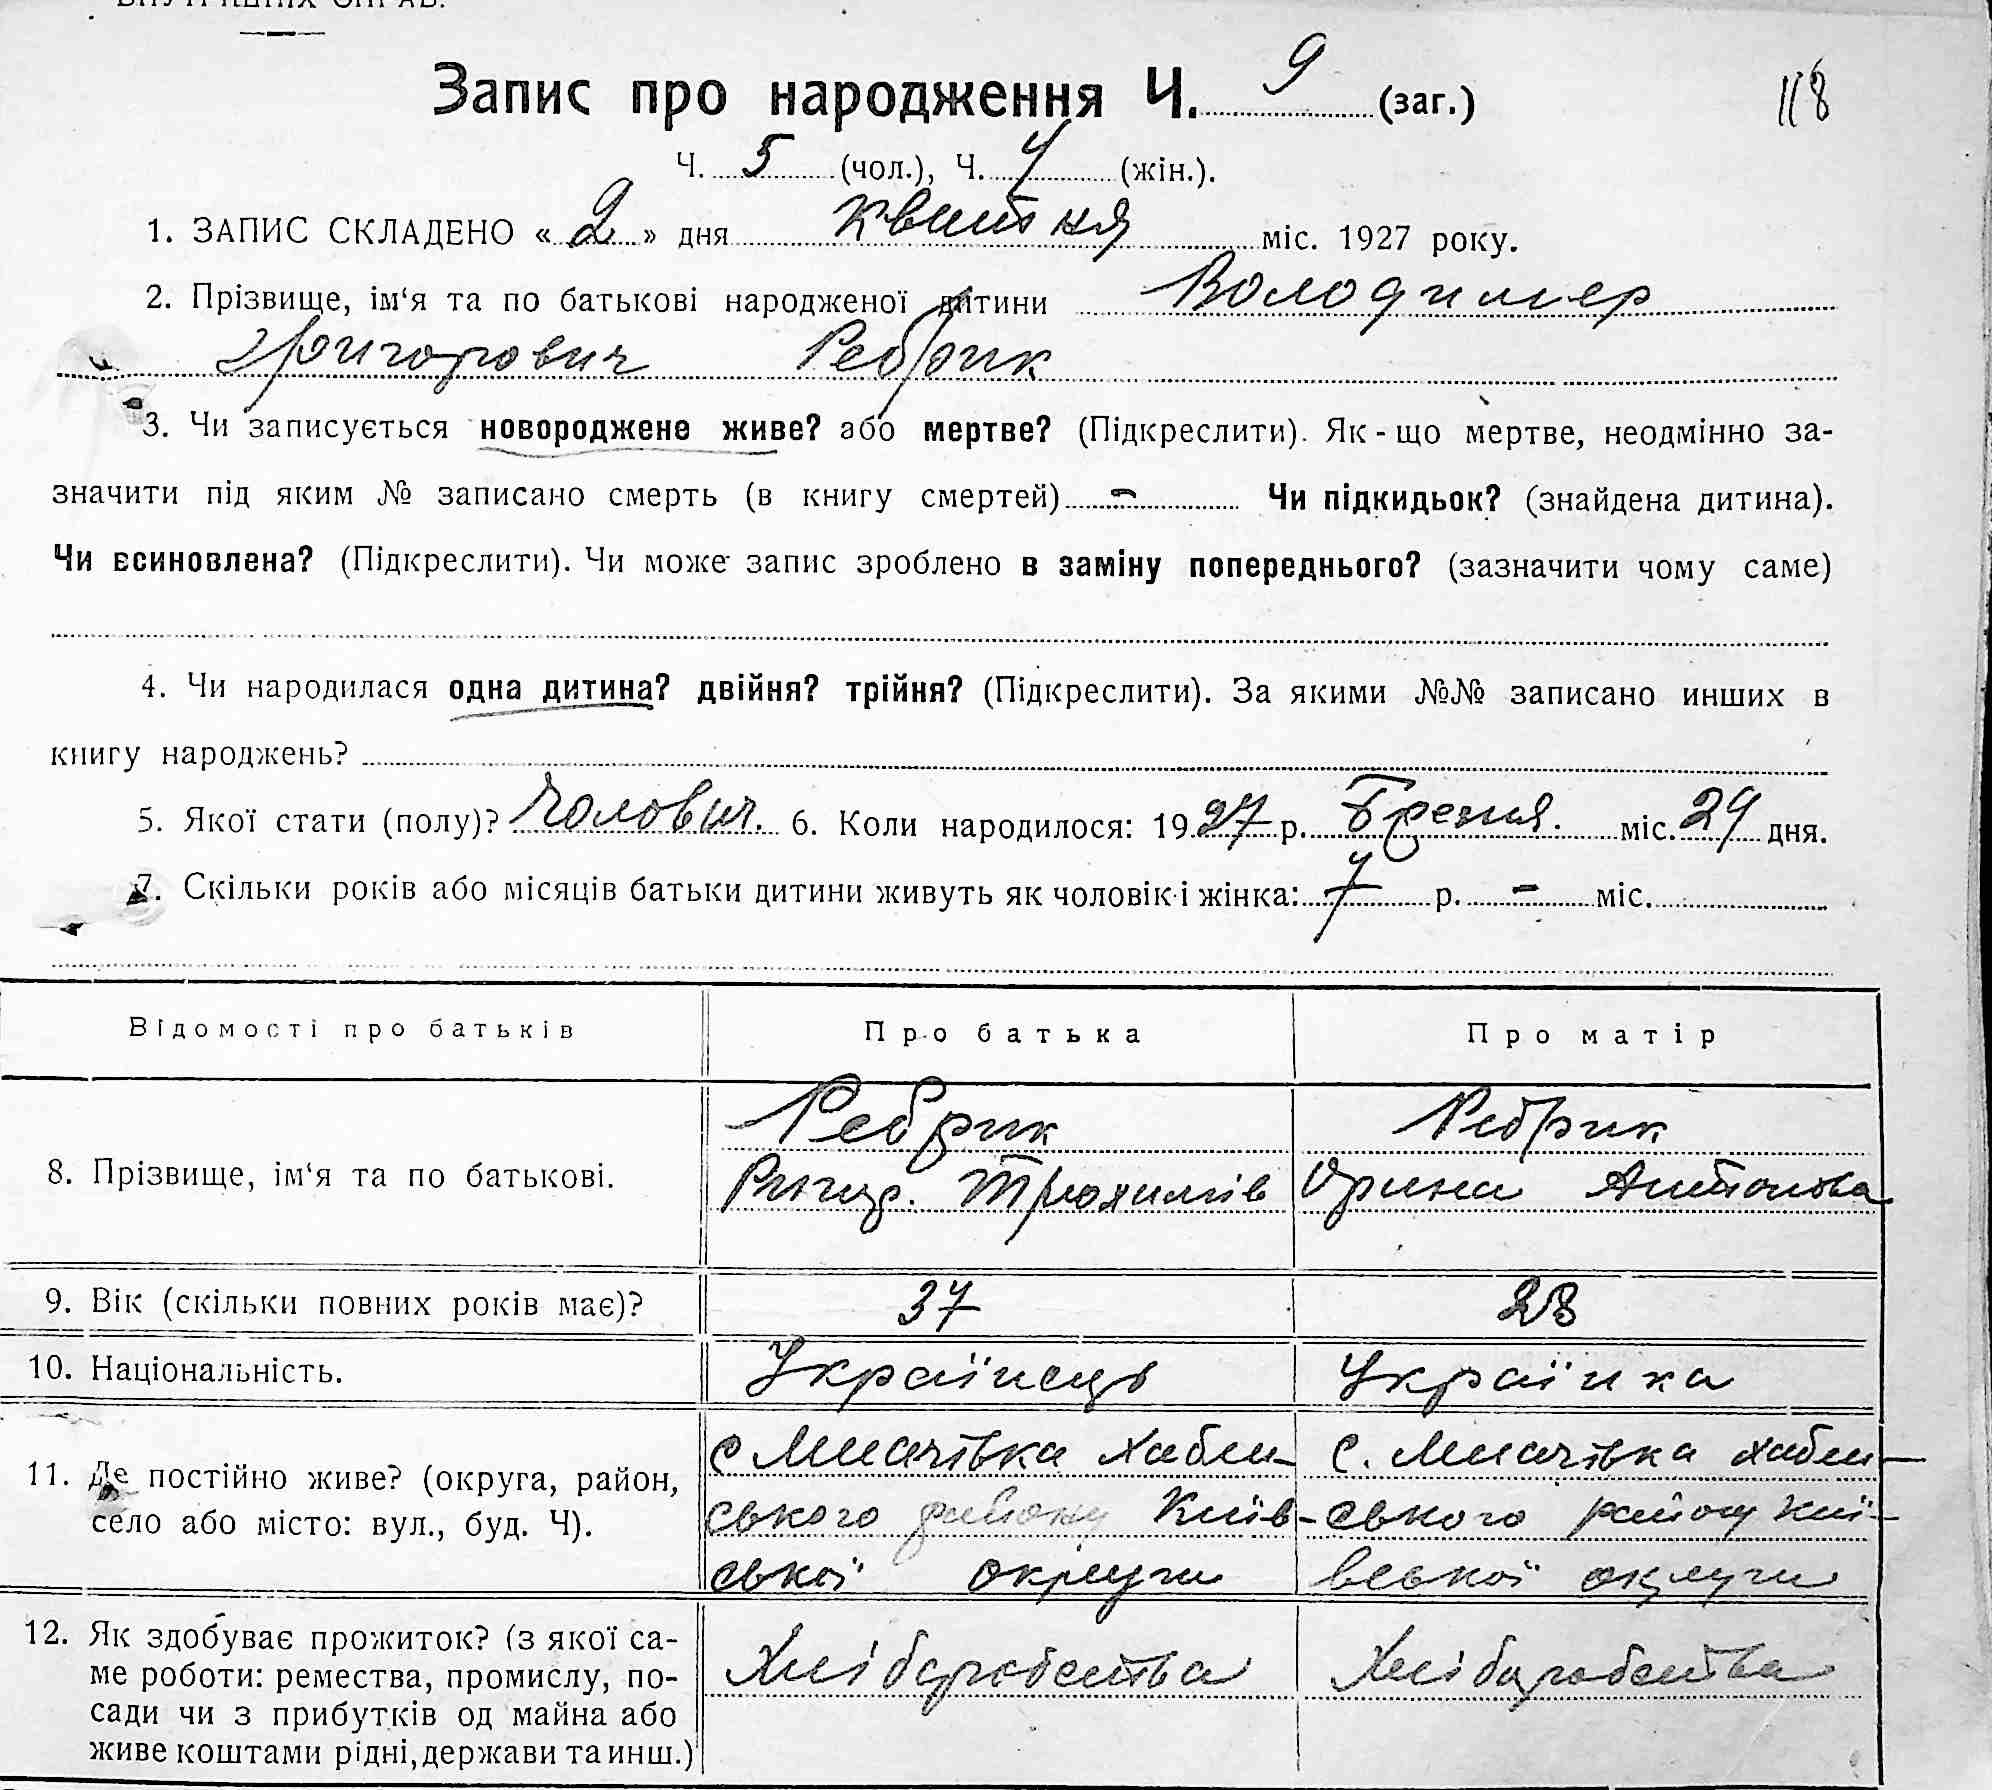 ВНУТРІШНІХ СПРАВ.
Запис про народження Ч. 9 (заг.)
118
Ч. 5 (чол.), Ч. 4 (жін.).
1. ЗАПИС СКЛАДЕНО « 2 » дня Квітня міс. 1927 року.
2. Прізвище, ім‘я та по батькові народженої дитини Володимер
Григорович Ребрик
3. Чи записується новороджене живе? або мертве? (Підкреслити). Як-що мертве, неодмінно за-
значити під яким № записано смерть (в книгу смертей) – Чи підкидьок? (знайдена дитина).
Чи всиновлена? (Підкреслити). Чи може запис зроблено в заміну попереднього? (зазначити чому саме)
4. Чи народилася одна дитина? двійня? трійня? (Підкреслити). За якими №№ записано инших в
книгу народжень?
5. Якої стати (полу)? Чоловіч. 6. Коли народилося: 1927 р. Березня. міс. 29 дня.
7. Скільки років або місяців батьки дитини живуть як чоловік і жінка: 7 р. – міс.
Відомості про батьків Про батька Про матір
8. Прізвище, ім‘я та по батькові. Ребрик Ребрик
Григор. Трохимів Орина Антонова
9. Вік (скільки повних років має)? 37 28
10. Національність. Українець Українка
11. Де постійно живе? (округа, район, село або місто: вул., буд. Ч). с Мпачівка Хабен- с. Мпачівка Хабен-
ського району Київ- ського району Киї-
ської округи вської округи
12. Як здобуває прожиток? (з якої са- Хліборобства Хліборобства
ме роботи: ремества, промислу, по-
сади чи з прибутків од майна або
живе коштами рідні, держави та инш.)